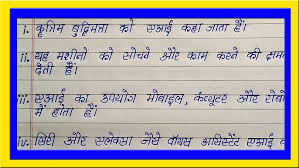 i. कृत्रिम बुद्धिमत्ता को एआई कहा जाता है।
ii. यह मशीनों को सोचने और काम करने की क्षमता
देती है।
iii. एआई का उपयोग मोबाइल, कंप्यूटर और रोबो
में होता है।
iv. सिरी और अलेक्सा जैसे वॉयस असिस्टेंट एआई